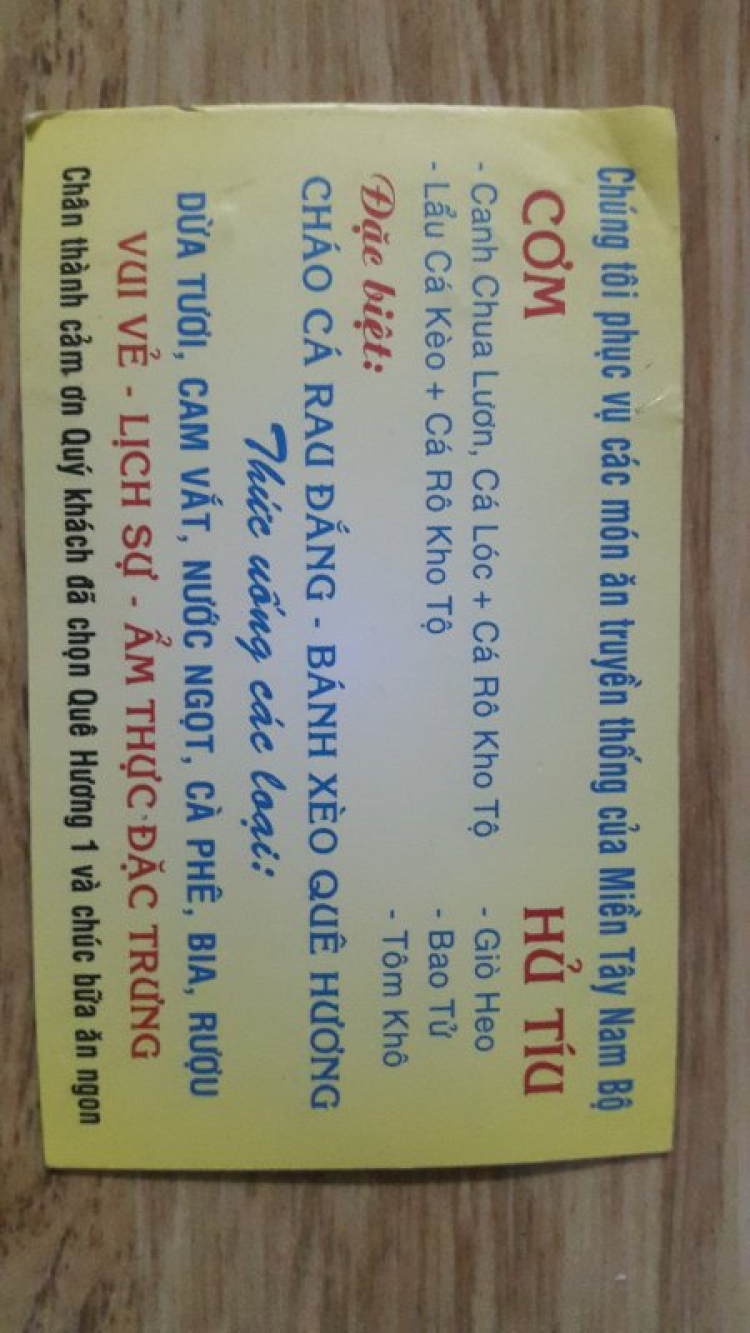 Chúng tôi phục vụ các món ăn truyền thống của Miền Tây Nam Bộ
CƠM
HỦ TÍU
- Canh Chua Lươn, Cá Lóc + Cá Rô Kho Tộ
- Giò Heo
- Lẩu Cá Kèo + Cá Rô Kho Tộ
- Bao Tử
- Tôm Khô
Đặc biệt:
CHÁO CÁ RAU ĐẮNG - BÁNH XÈO QUÊ HƯƠNG
Thức uống các loại:
DỪA TƯƠI, CAM VẮT, NƯỚC NGỌT, CÀ PHÊ, BIA, RƯỢU
VUI VẺ - LỊCH SỰ - ẨM THỰC ĐẶC TRƯNG
Chân thành cảm ơn Quý khách đã chọn Quê Hương 1 và chúc bữa ăn ngon